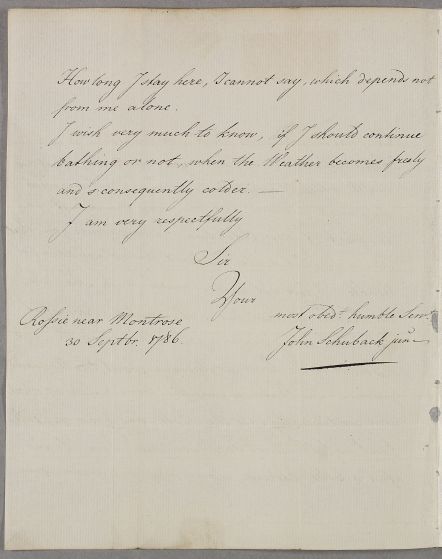 How long I stay here, I cannot say, which depends not
from me alone.
I wish very much to know, if I should continue
bathing or not, when the Weather becomes frosty
and s consequently colder. —
I am very respectfully
Sir
Your
most obdt. humble Servt.
Rossie near Montrose
30 Septbr. 1786.
John Schuback junr.